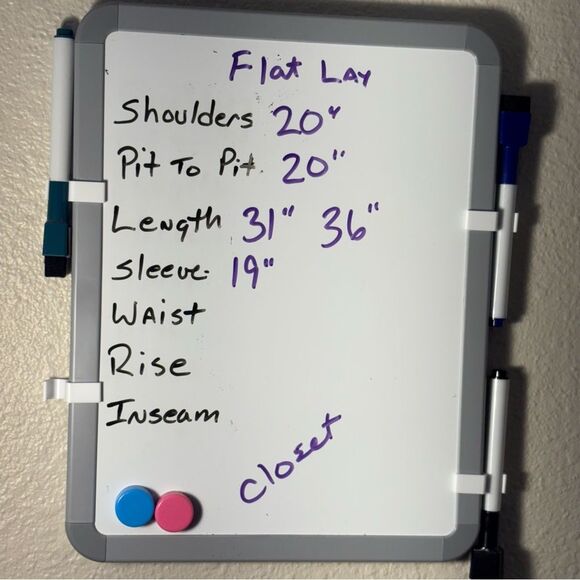 Flat Lay
Shoulders 20"
Pit To Pit. 20"
Length 31" 36"
Sleeve- 19"
Waist
Rise
Inseam
Closet